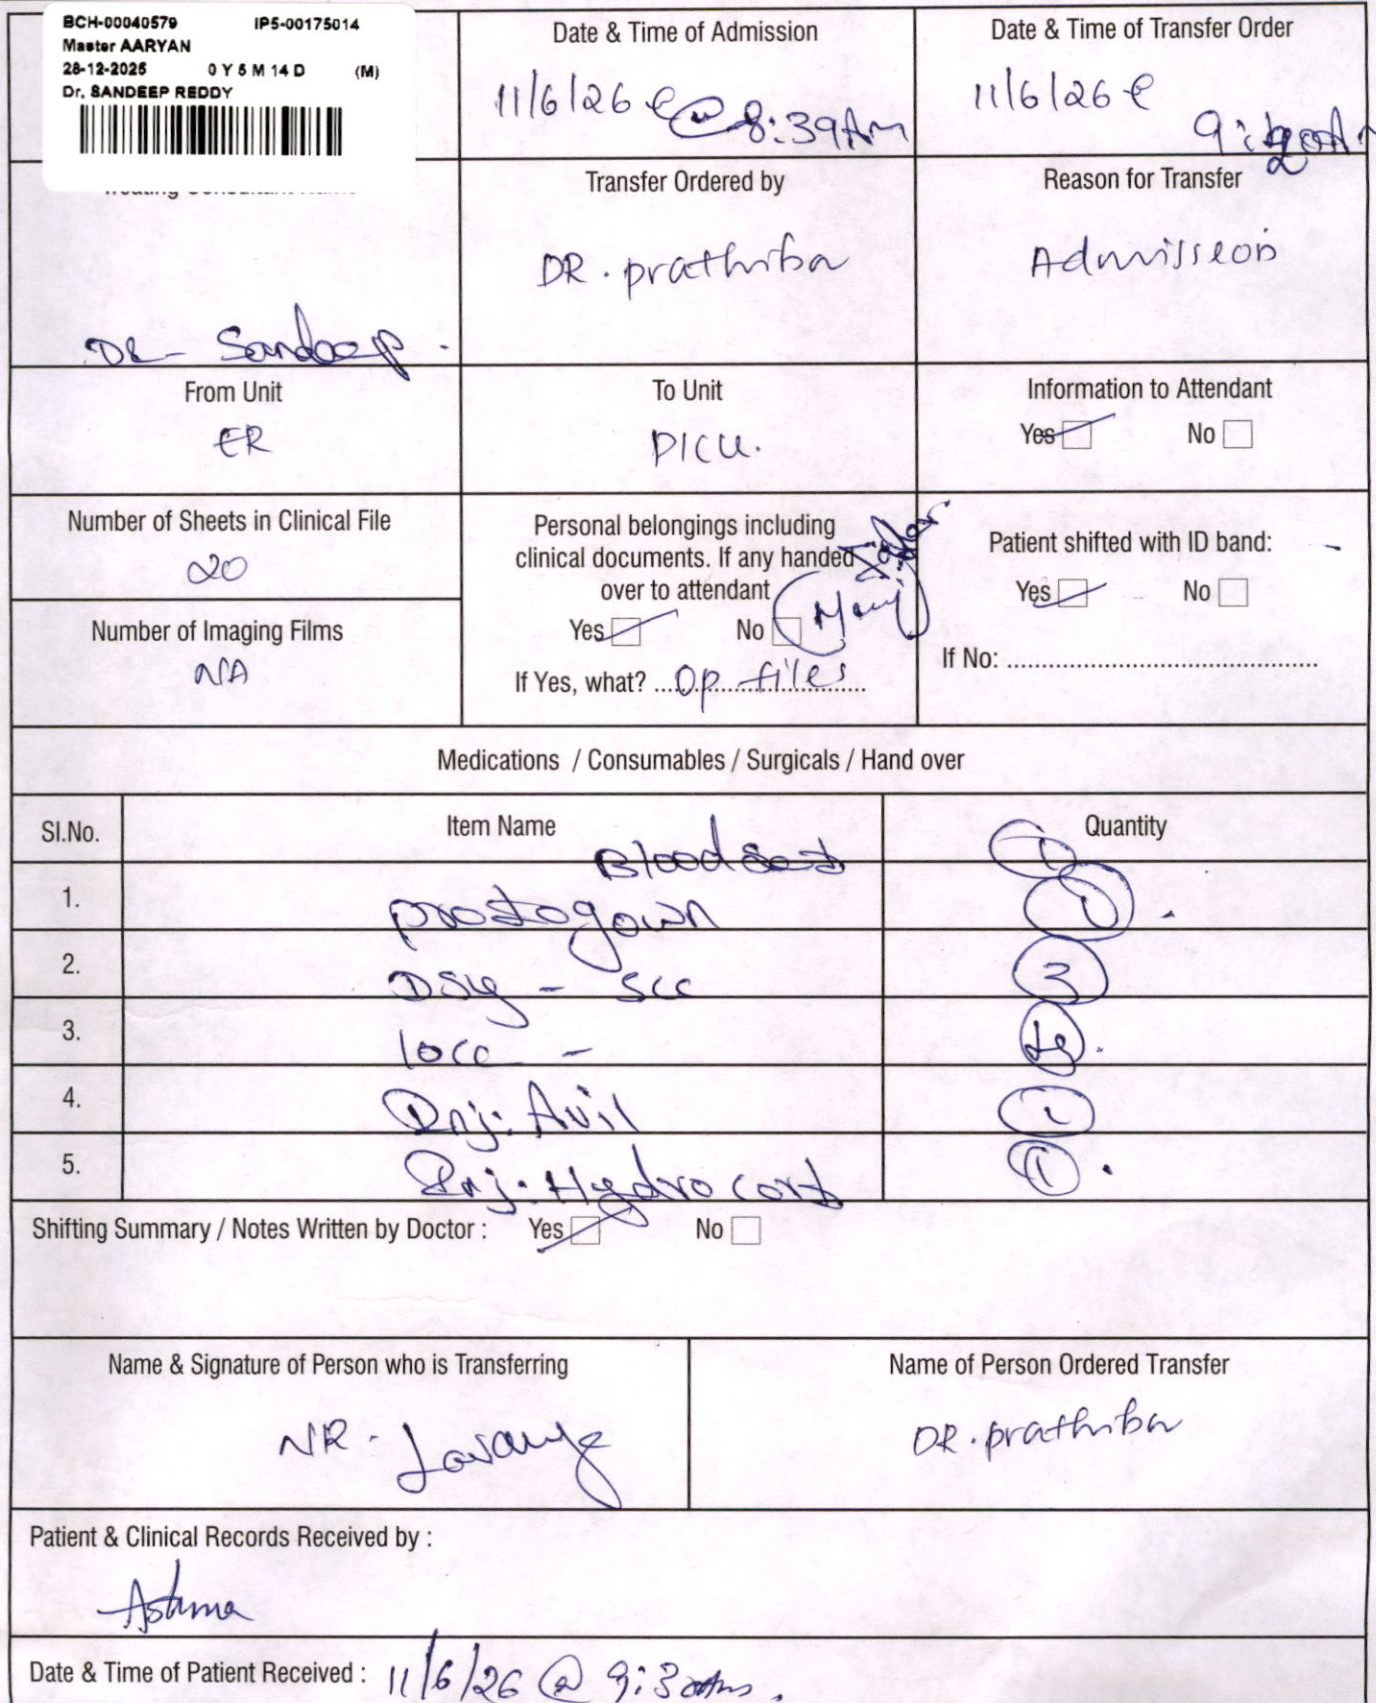 BCH-00040579 IP5-00175014
Master AARYAN
28-12-2025 0 Y 5 M 14 D (M)
Dr. SANDEEP REDDY
Date & Time of Admission
11/6/26 @ 8:39Am
Date & Time of Transfer Order
11/6/26
Treating Consultant Name
Dr - Sandeep.
Transfer Ordered by
DR. prathiba
Reason for Transfer
Admission
From Unit
ER
To Unit
PICU.
Information to Attendant
Yes No
Number of Sheets in Clinical File
20
Number of Imaging Films
NA
Personal belongings including
clinical documents. If any handed
over to attendant
Yes No
If Yes, what? op files
Patient shifted with ID band:
Yes No
If No:
Medications / Consumables / Surgicals / Hand over
Sl.No. Item Name Quantity
Blood 1
1. gown 1
2. 5cc 3
3. 10cc -
4. Inj: Avil 1
5. Inj: Hydrocort 1
Shifting Summary / Notes Written by Doctor : Yes No
Name & Signature of Person who is Transferring
NR.
Name of Person Ordered Transfer
DR. prathiba
Patient & Clinical Records Received by :
Date & Time of Patient Received : 11/6/26 @ 9:30Am.